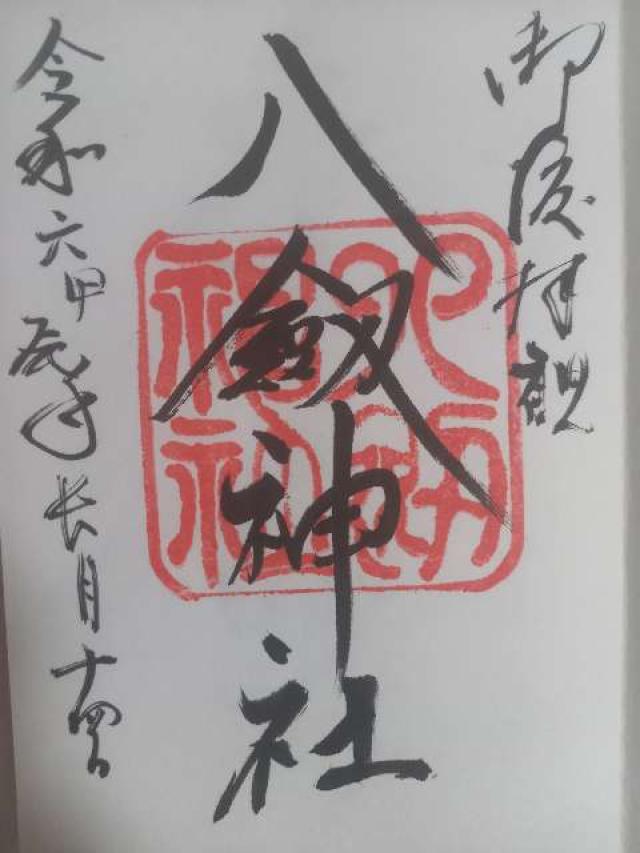 御渡拝観
八劔神社
八劔神社
令和六甲辰年長月十四日